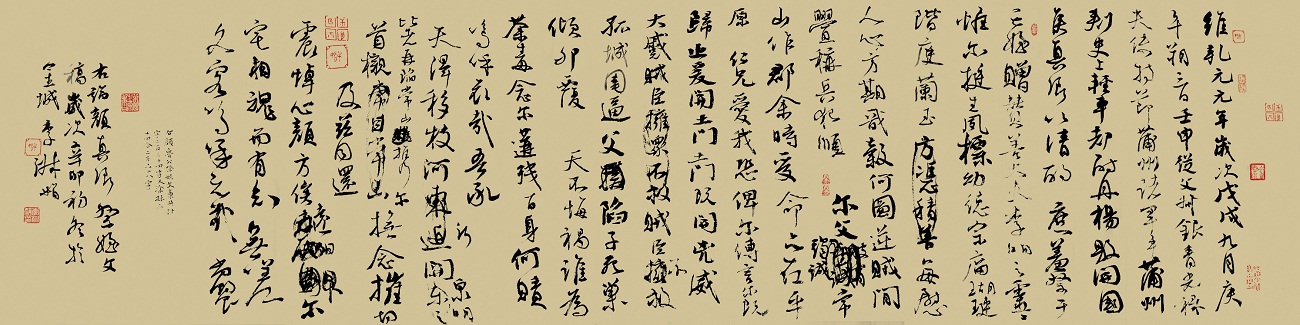 維乾元元年歲次戊戌九月庚
午朔三日壬申從父叔銀青光祿
夫使持節蒲州諸軍事蒲州
刺史上輕車都尉丹楊縣開國
侯真卿以清酌庶羞祭于
亡姪贈贊善大夫季明之靈
惟爾挺生夙標幼德宗廟瑚璉
階庭蘭玉方憑積善每慰
人心方期戩穀何圖逆賊間
釁稱兵犯順爾父竭誠常
山作郡余時受命亦在平
原仁兄愛我恐俾爾傳言爾既
歸止爰開土門土門既開凶威
大蹙賊臣擁眾不救賊臣擁救
孤城圍逼父擒陷子死巢
傾卵覆天不悔禍誰為
荼毒念爾遘殘百身何贖
嗚呼哀哉吾承
天澤移牧河東近河關泉明
比者再陷常山提爾
首櫬及茲同還撫念摧切
震悼心顏方俟遠日爾
宅相魂而有知無嗟
久客嗚呼哀哉尚饗
右錄顏真卿祭姪文
稿歲次辛卯初冬於
金城李